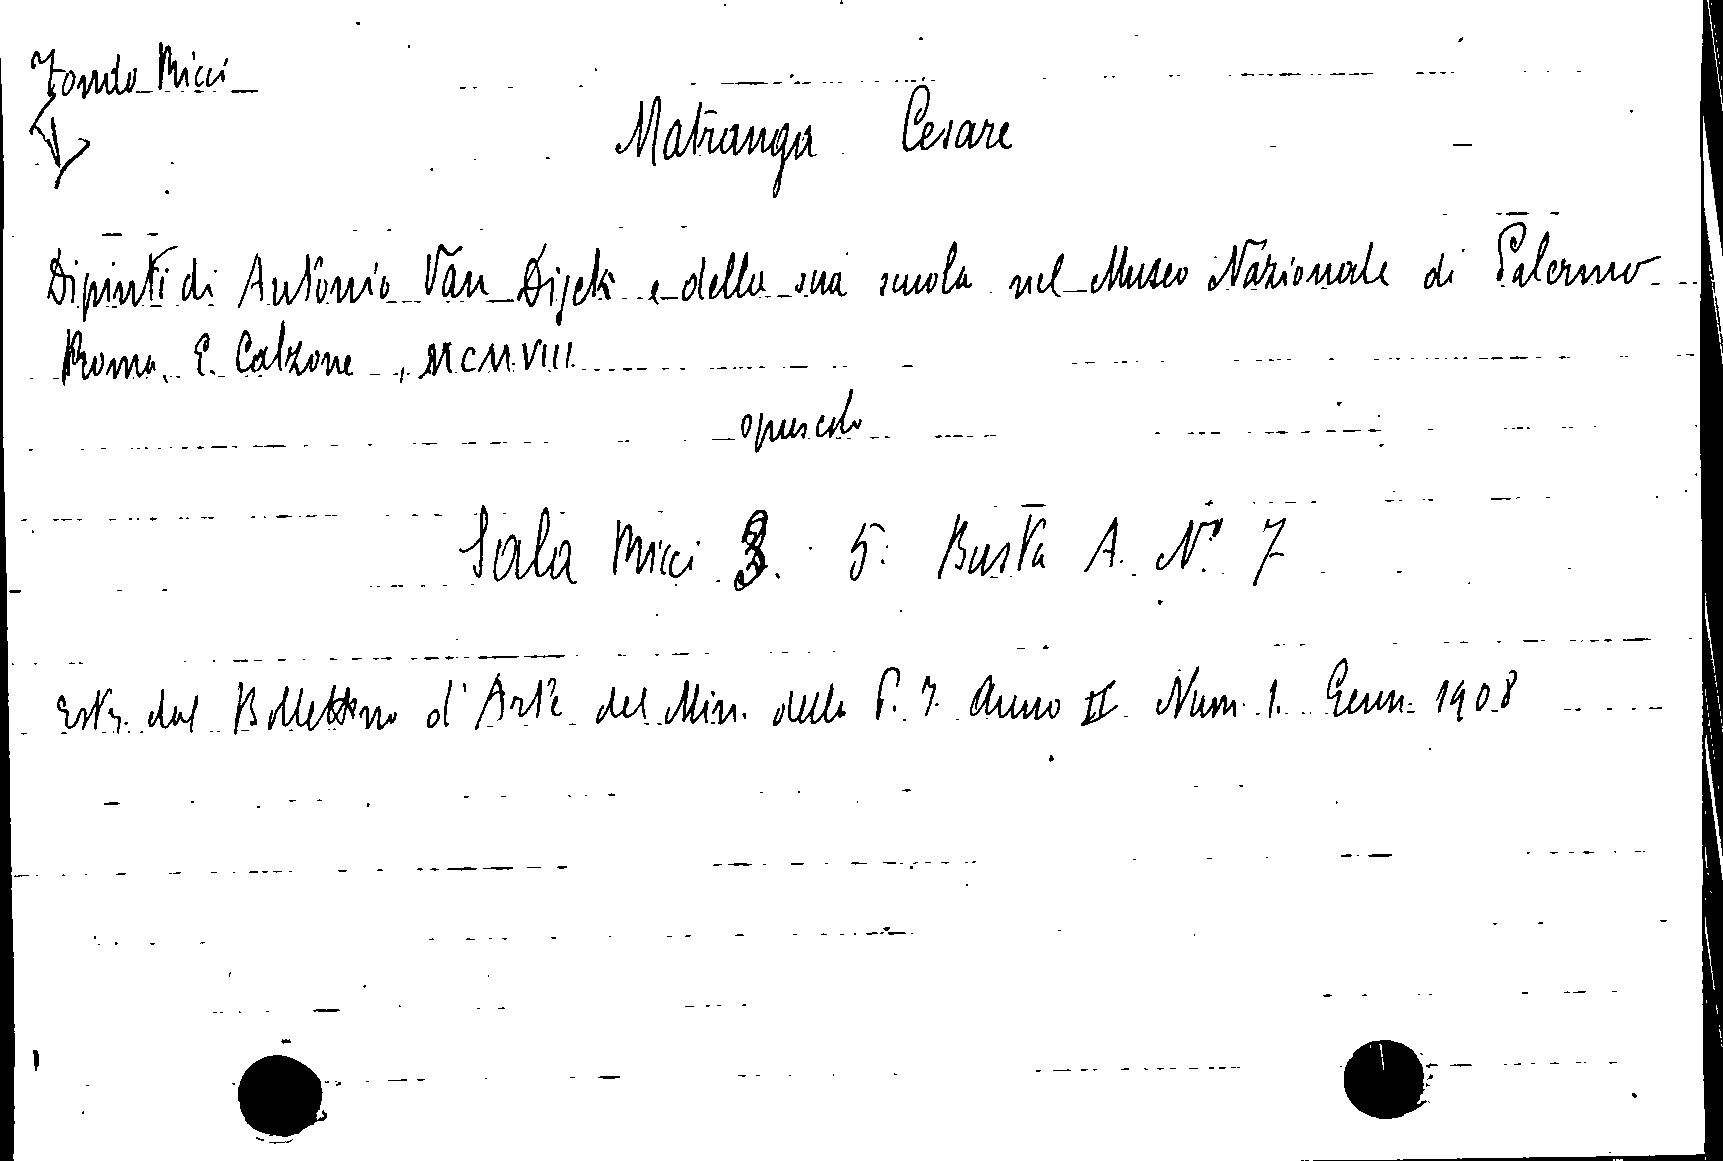 Fondo Ricci
V
Matranga Cesare
Dipinti di Antonio Van Dijck e della sua scuola nel Museo Nazionale di Palermo
Roma, E. Calzone, MCMVIII
opuscolo
Sala Ricci 3. 5. Busta A. N° 7
Estr. dal Bollettino d'Arte del Min. della P. I. Anno II Num. 1. Genn. 1908